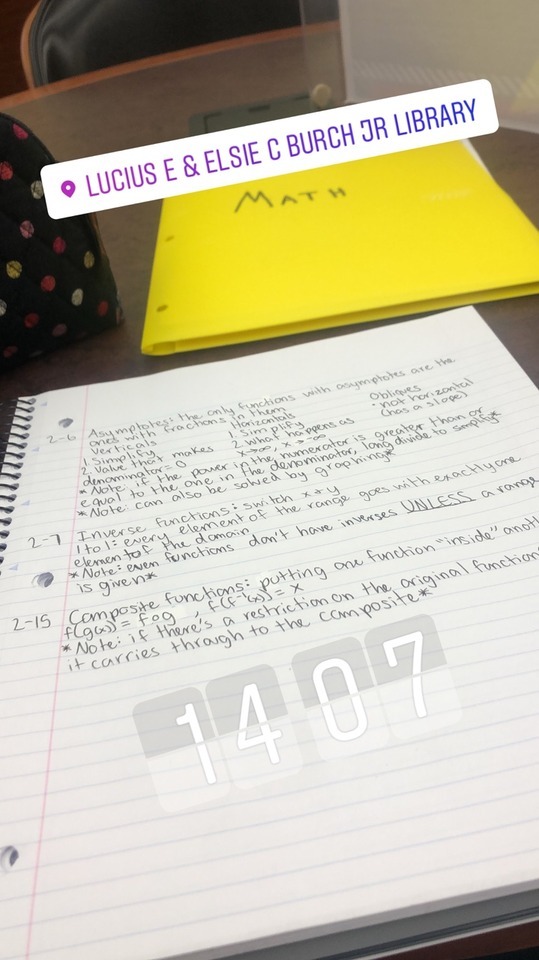 LUCIUS E & ELSIE C BURCH JR LIBRARY
MATH
2-6 Asymptotes: the only functions with asymptotes are the
ones with fractions in them
Verticals Horizontals Obliques
1. Simplify 1. Simplify • not horizontal
2. Value that makes 2. what happens as (has a slope)
denominator = 0 x→∞, x→-∞
*Note: if the power in the numerator is greater than or
equal to the one in the denominator, long divide to simplify*
*Note: can also be solved by graphing*
2-7 Inverse functions: switch x + y
1 to 1: every element of the range goes with exactly one
element of the domain
*Note: even functions don't have inverses UNLESS a range
is given*
2-15 Composite functions: putting one function "inside" anoth
f(g(x)) = f∘g, f(f⁻¹(x)) = x
*Note: if there's a restriction on the original function
it carries through to the composite*
1407